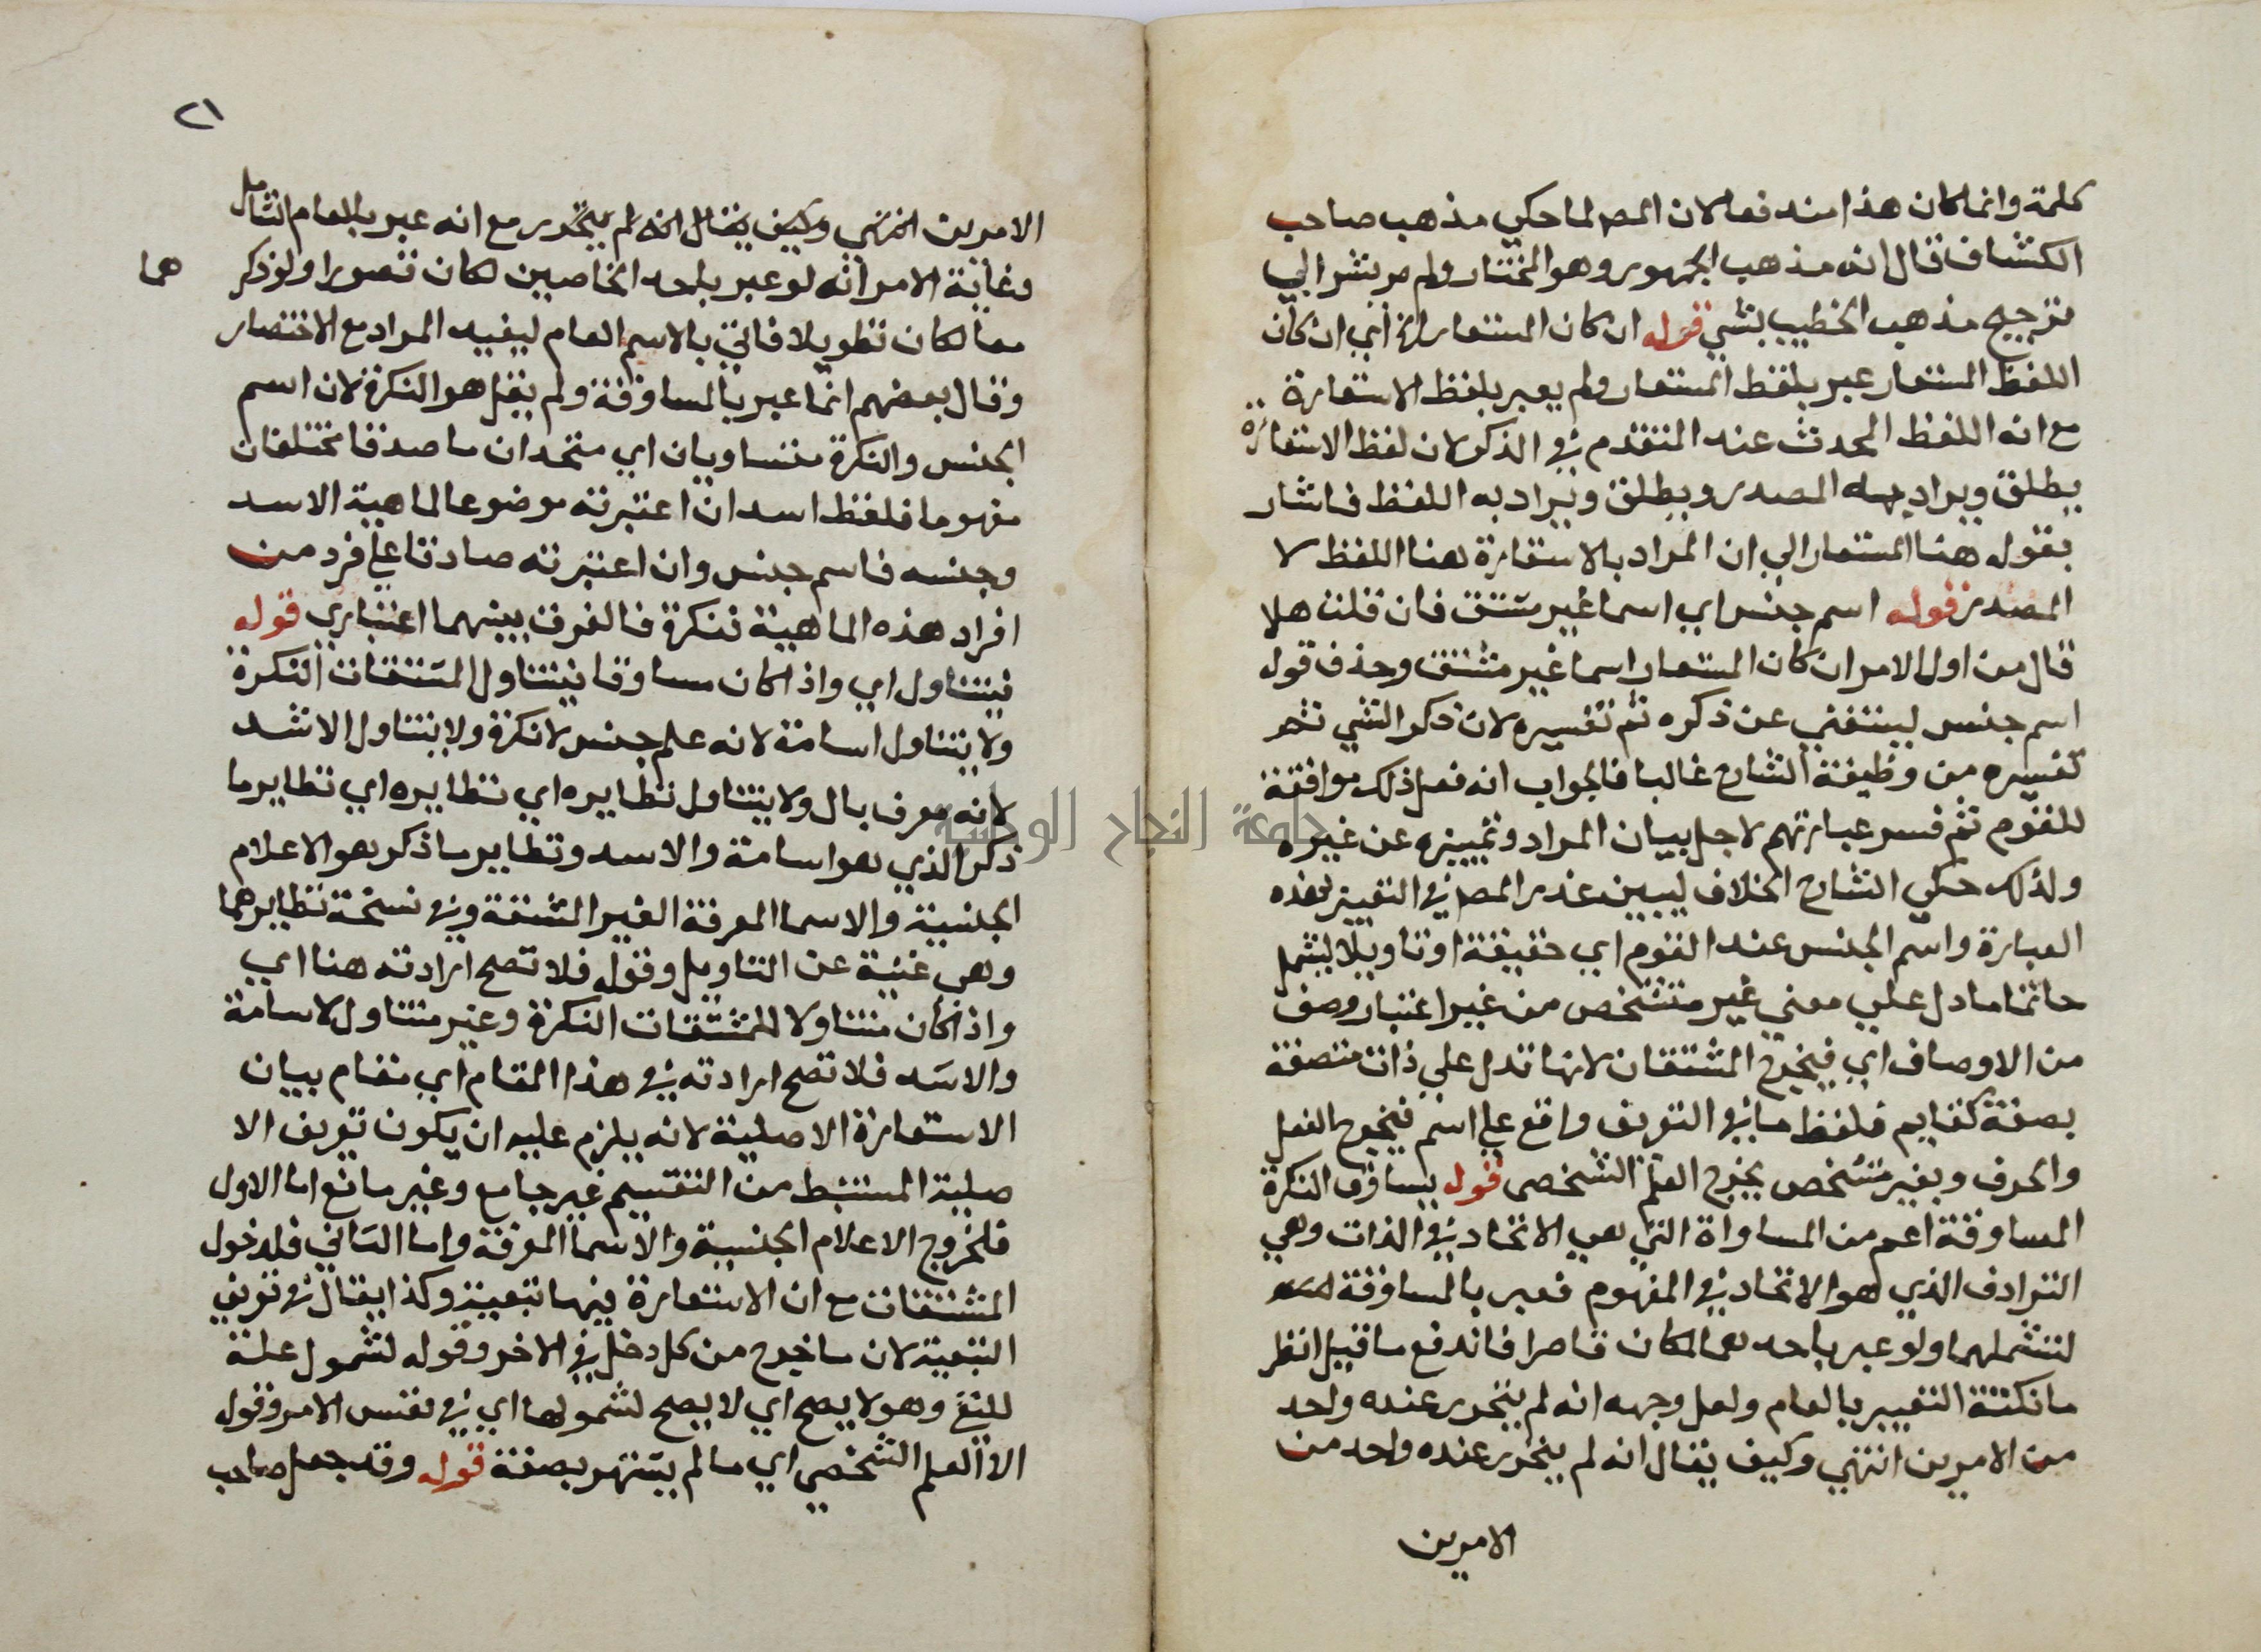 كلمة وانما كان هذا منه فعا لان المص لما حكي مذهب صاحب
الكشاف قال انه مذهب الجمهور وهو المختار ولم يشر الي
ترجيح مذهب الخطيب بشي قوله ان كان المستعار الخ اي ان كان
اللفظ المستعار عبر بلفظ المستعار ولم يعبر بلفظ الاستعارة
مع انه اللفظ المحدث عنه المتقدم في الذكر لان لفظ الاستعارة
يطلق ويراد به المصدر ويطلق ويراد به اللفظ فاشار
بقوله هنا المستعار الي ان المراد بالاستعارة هنا اللفظ لا
المصدر قوله اسم جنس اي اسما غير مشتق فان قلت هلا
قال من اول الامر ان كان المستعار اسما غير مشتق وحذف قوله
اسم جنس ليستغني عن ذكره ثم تفسيره لان ذكر الشي ثم
تفسيره من وظيفة الشارح غالبا فالجواب انه فعل ذلك موافقة
للقوم ثم فسر عبارتهم لاجل بيان المراد وتمييزه عن غيره
ولذلك حكي الشارح الخلاف ليبين عذر المص في التعبير بهذه
العبارة واسم الجنس عند القوم اي حقيقة او تاويلا ليشمل
حاتما ما دل علي معني غير متشخص من غير اعتبار وصف
من الاوصاف اي فيخرج المشتقات لانها تدل علي ذات متصفة
بصفة كقايم فلفظ ما في التعريف واقع علي اسم فيخرج الفعل
والحرف وبغير متشخص يخرج العلم الشخصي قوله يساوق النكرة
المساوقة اعم من المساواة التي هي الاتحاد في الذات وهي
الترادف الذي هو الاتحاد في المفهوم فعبر بالمساوقة
لتشملهما ولو عبر باحدهما لكان قاصرا فاندفع ما قيل انظر
ما نكتة التعبير بالعام ولعل وجهه انه لم يتحرر عنده واحد
من الامرين انتهي وكيف يقال انه لم يتحرر عنده واحد من
الامرين
٢١
الامرين انتهي وكيف يقال انه لم يتحرر مع انه عبر بالعام الشامل
وغاية الامر انه لو عبر باحد الخاصين لكان قصورا ولو ذكر هما
معا لكان تطويلا فاتي بالاسم العام ليفيد المراد مع الاختصار
وقال بعضهم انما عبر بالمساوقة ولم يقل هو النكرة لان اسم
الجنس والنكرة متساويان اي متحدان ما صدقا مختلفان
مفهوما فلفظ اسد ان اعتبرته موضوعا لماهية الاسد
وجنسه فاسم جنس وان اعتبرته صادقا علي فرد من
افراد هذه الماهية فنكرة فالفرق بينهما اعتباري قوله
فيتناول اي واذا كان مساوقا فيتناول المشتقات النكرة
ولا يتناول اسامة لانه علم جنس لا نكرة ولا يتناول الاسد
لانه معرف بال ولا يتناول نظايره اي نظايره اي نظاير ما
ذكر الذي هو اسامة والاسد ونظاير ما ذكر هو الاعلام
الجنسية والاسما المعرفة الغير المشتقة وفي نسخة نظايرهما
وهي غنية عن التاويل وقوله فلا تصح ارادته هنا اي
واذا كان متناولا للمشتقات النكرة وغير متناول لاسامة
والاسد فلا تصح ارادته في هذا المقام اي مقام بيان
الاستعارة الاصلية لانه يلزم عليه ان يكون تعريف الا
صلية المستنبط من التقسيم غير جامع وغير مانع اما الاول
فلخروج الاعلام الجنسية والاسما المعرفة واما الثاني فلدخول
المشتقات مع ان الاستعارة فيها تبعية وكذا يقال في تعريف
التبعية لان ما خرج من كل دخل في الاخر وقوله لشمول علة
للنفي وهو لا يصح اي لا يصح لشمولها اي في نفس الامر وقوله
الا العلم الشخصي اي ما لم يشتهر بصفة قوله وقد جعل صاحب
جامعة النجاح الوطنية